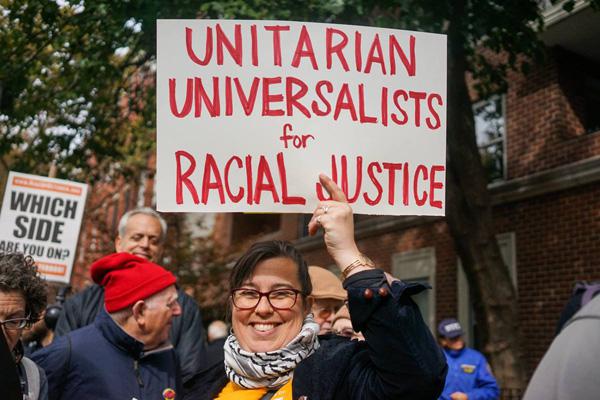 UNITARIAN
UNIVERSALISTS
for
RACIAL JUSTICE
WHICH
SIDE
ARE YOU ON?